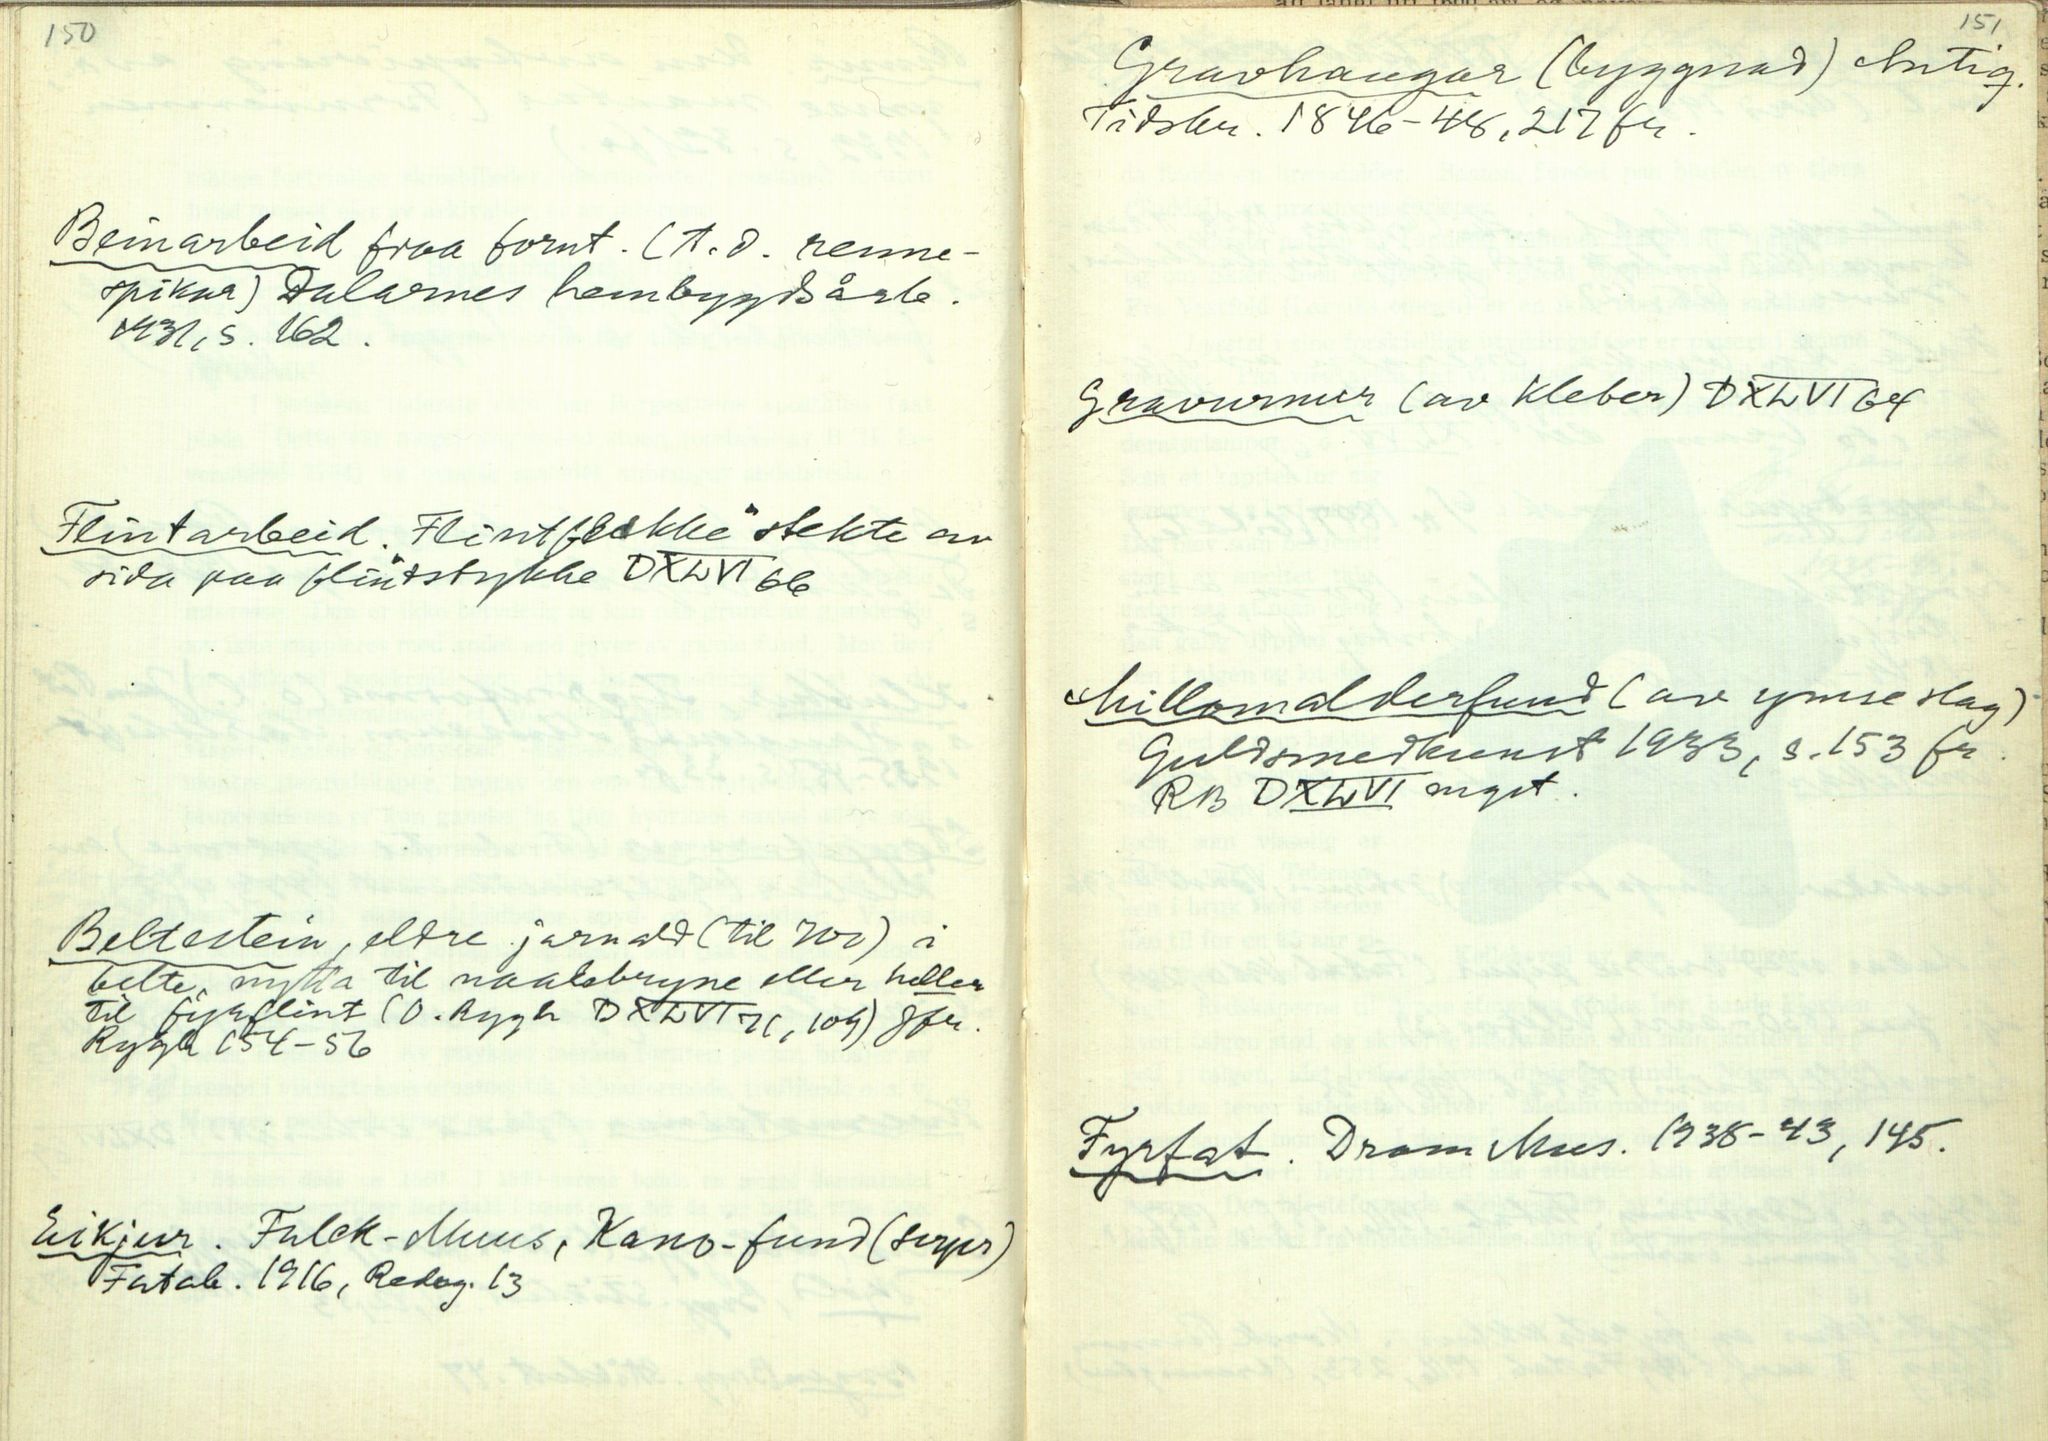 150
Beinarbeid fraa fornt. (t.d. renne-
spikar) Dalarnes hembygdsårb.
1931, s. 162.
Flintarbeid. Flintflekke "stekte av
sida paa flintstykke DXLVI 66
Beltestein, eldre jarnald (til 700) i
belte, nytta til naalebryne eller heller
til fyrflint (O. Rygh DXLVI 71, 109) Jfr.
Rygh 154-56
Eikjur. Falck-Muus, Kano-fund
Fatab. 1916, Redog. 13
151
Gravhaugar (byggnad) Antiq.
Tidskr. 1846-48, 217 fr.
Gravurner (av Kleber) DXLVI 64
Millomalderfund (av ymse slag)
Guldsmedkunst 1933, s. 153 fr.
RB DXLVI mgst.
Fyrfat. Dram Mus. 1938-43, 145.